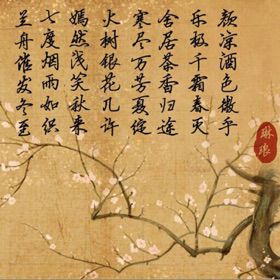 颜凉酒色微乎
乐极千霜春灭
舍居茶香归途
寒尽万芳夏绽
火树银花几许
嫣然浅笑秋来
七度烟雨如织
兰舟催发冬至
琳琅